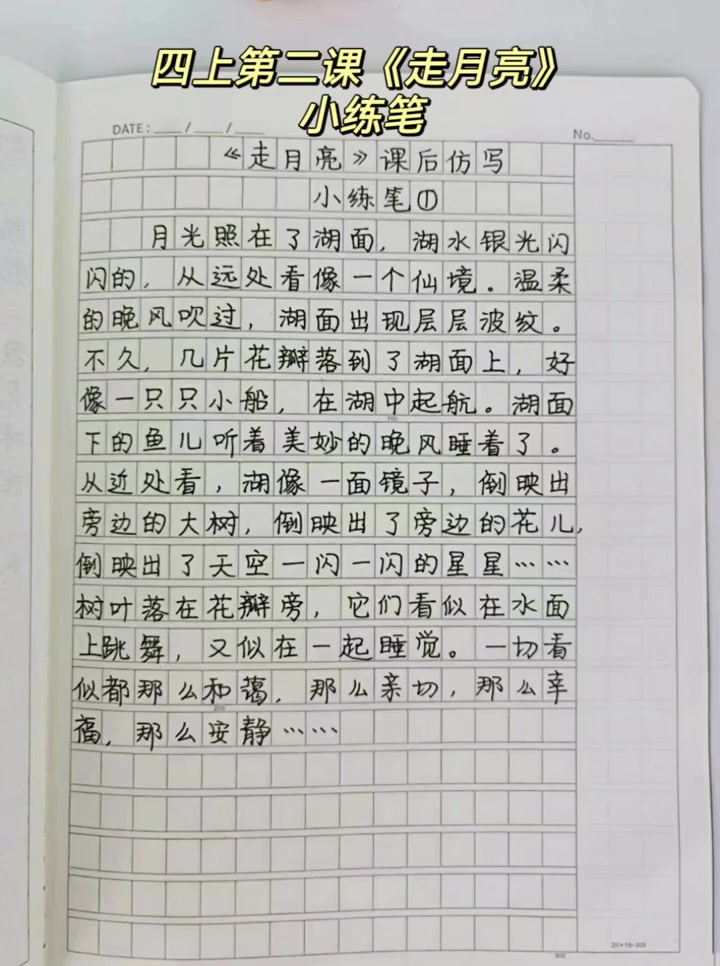 四上第二课《走月亮》
小练笔
DATE: ___/___/___
No.______
《走月亮》课后仿写
小练笔①
月光照在了湖面，湖水银光闪
闪的，从远处看像一个仙境。温柔
的晚风吹过，湖面出现层层波纹。
不久，几片花瓣落到了湖面上，好
像一只只小船，在湖中起航。湖面
下的鱼儿听着美妙的晚风睡着了。
从近处看，湖像一面镜子，倒映出
旁边的大树，倒映出了旁边的花儿，
倒映出了天空一闪一闪的星星……
树叶落在花瓣旁，它们看似在水面
上跳舞，又似在一起睡觉。一切看
似都那么和蔼，那么亲切，那么幸
福，那么安静……